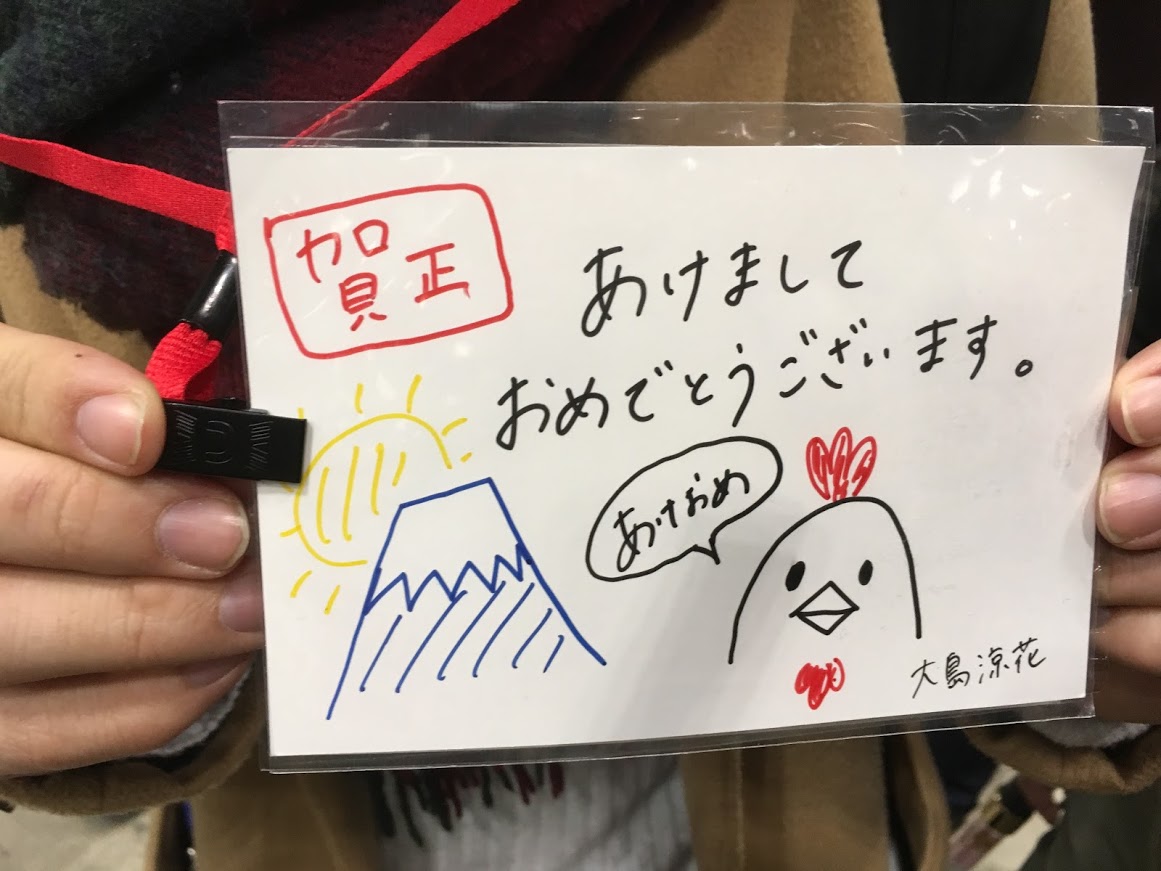 賀正
あけまして
おめでとうございます。
あけおめ
大島涼花